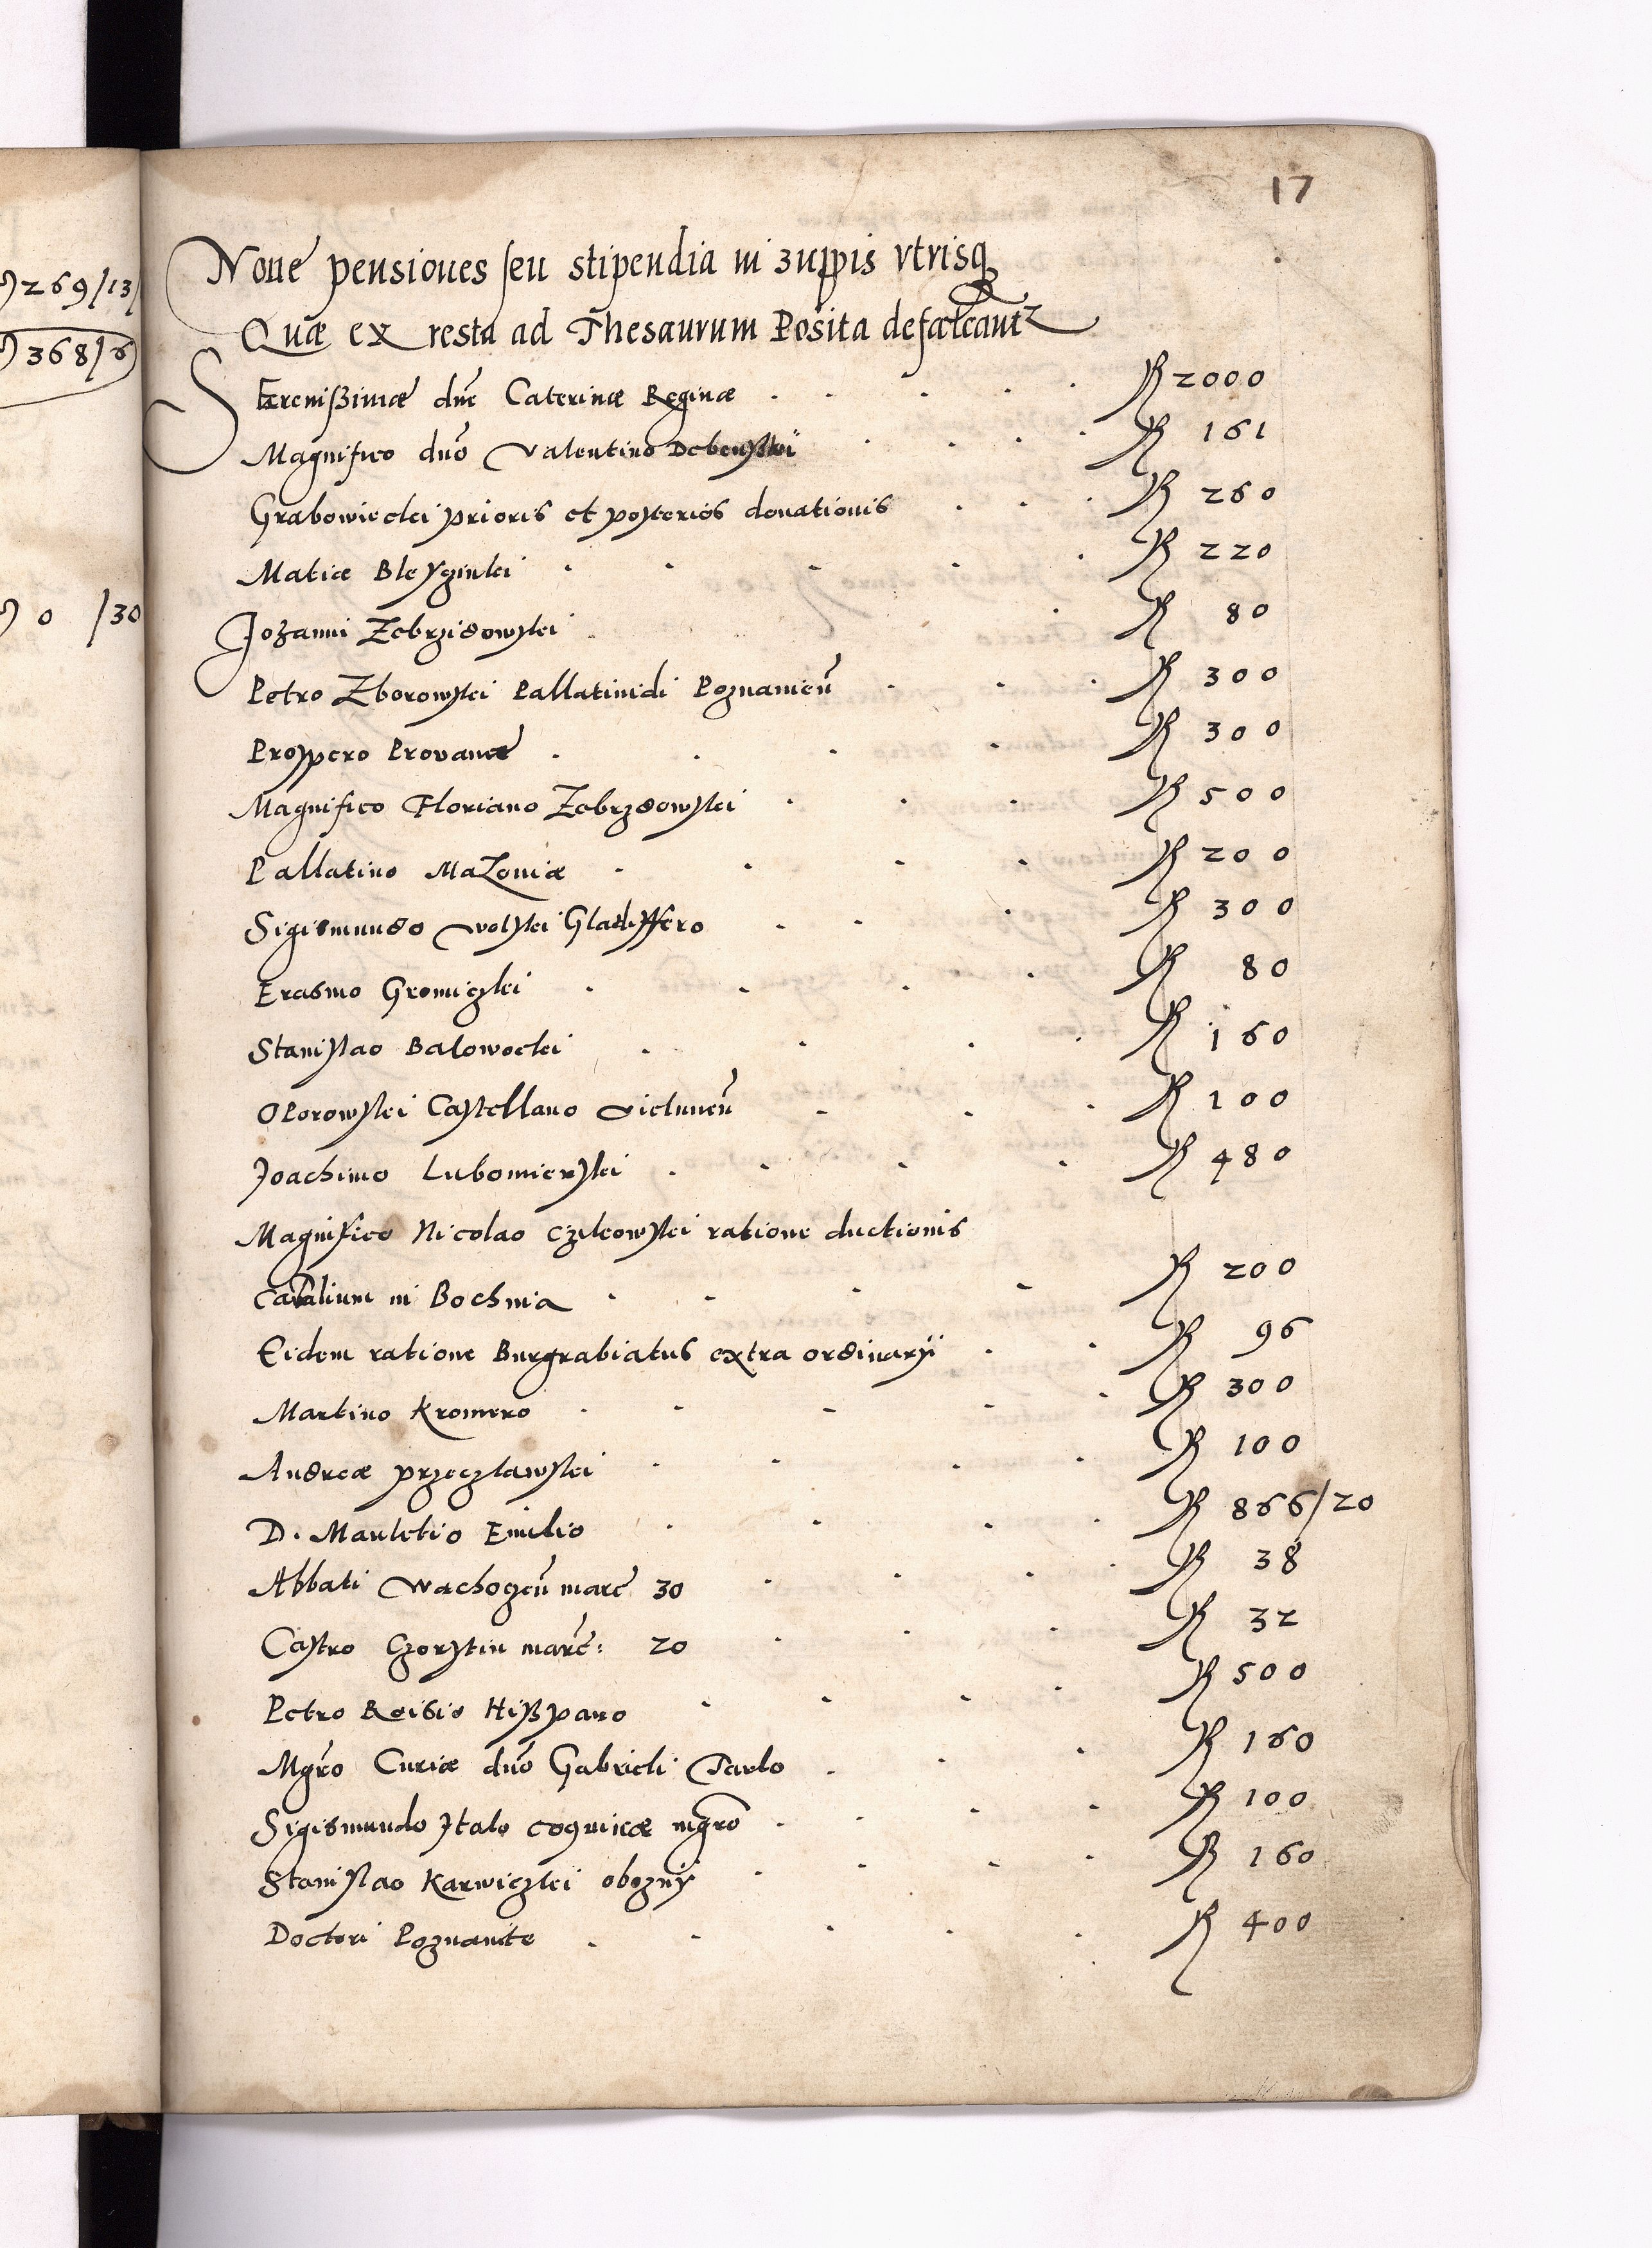 269/13
368/6
0 /30
17
Noue pensiones seu stipendia in zuppis vtrisq
Quæ ex resta ad Thesaurum Posita defalcantr
Serenißimæ dne Caterinæ Reginæ R 2000
Magnifico dno Valentino Debenskij R 161
Grabowieckei prioris et posterios donationis R 260
Matiæ Bleyzinkei R 220
Johanni Zebrzidowskei R 80
Petro Zborowskei Pallatinidi Poznanien R 300
Prospero Provanæ R 300
Magnifico Floriano Zebrzdowskei R 500
Pallatino Mazoniæ R 200
Sigismundo Wolskei Gladiffero R 300
Erasmo Gromiczkei R 80
Stanislao Balowockei R 160
Oborowskei Castellano Vielunen R 100
Joachimo Lubomierskei R 480
Magnifico Nicolao Czikowskei ratione ductionis
Caballium in Bochnia R 200
Eidem ratione Burgrabiatus extra ordinarij R 96
Martino Kromero R 300
Andreæ Przeczlawskei R 100
D. Manletio Emilio R 866/20
Abbati Wachoczen marc 30 R 38
Castro Czorstin marc: 20 R 32
Petro Roisio Hißpano R 500
Mgro Curiæ dno Gabrieli Tarlo R 160
Sigismundo Italo coquinæ mgro R 100
Stanislao Karwiczkei obozny R 160
Doctori Poznanite R 400